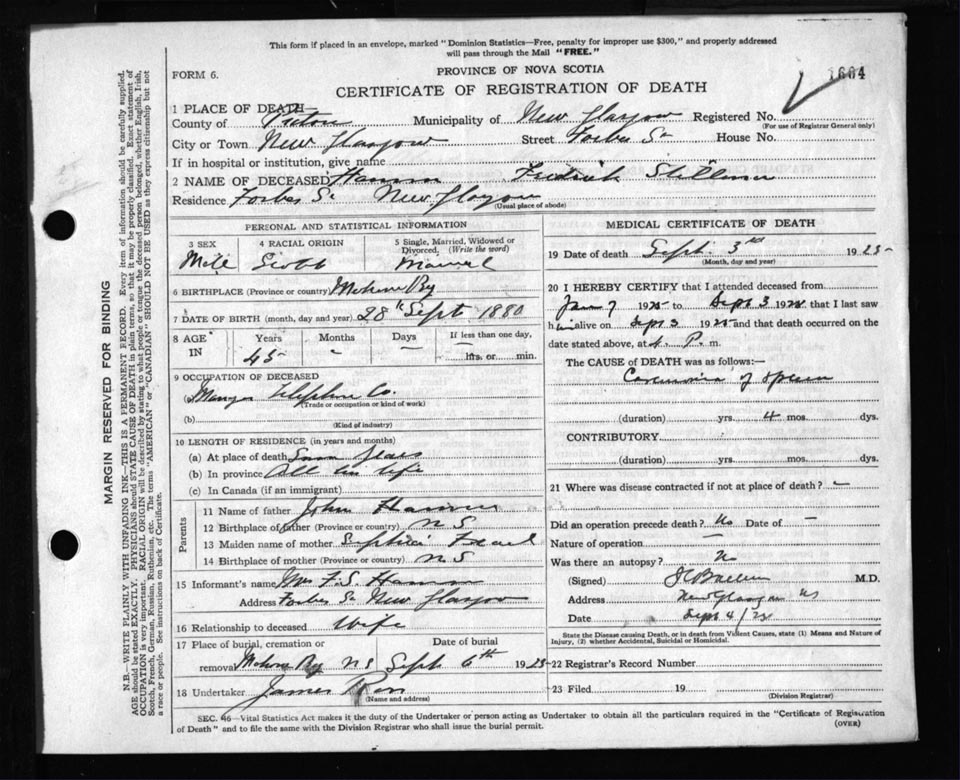 This form if placed in an envelope, marked "Dominion Statistics—Free, penalty for improper use $300," and properly addressed
will pass through the Mail "FREE."
FORM 6.
PROVINCE OF NOVA SCOTIA
1664
CERTIFICATE OF REGISTRATION OF DEATH
1 PLACE OF DEATH—
County of Pictou Municipality of New Glasgow Registered No.
(For use of Registrar General only)
City or Town New Glasgow Street Forbes St House No.
If in hospital or institution, give name
2 NAME OF DECEASED Fredrick Stillman
Residence Forbes St New Glasgow
(Usual place of abode)
PERSONAL AND STATISTICAL INFORMATION
3 SEX 4 RACIAL ORIGIN 5 Single, Married, Widowed or Divorced. (Write the word)
Male Married
6 BIRTHPLACE (Province or country) Mahone Bay
7 DATE OF BIRTH (month, day and year) 28th Sept 1880
8 AGE IN Years Months Days If less than one day,
45 - - hrs. or min.
9 OCCUPATION OF DECEASED
(a) Manager Telephone Co.
(Trade or occupation or kind of work)
(b)
(Kind of industry)
10 LENGTH OF RESIDENCE (in years and months)
(a) At place of death years
(b) In province All his life
(c) In Canada (if an immigrant)
Parents
11 Name of father John
12 Birthplace of father (Province or country) N S
13 Maiden name of mother
14 Birthplace of mother (Province or country) N S
15 Informant's name Mrs F. S.
Address Forbes St New Glasgow
16 Relationship to deceased Wife
17 Place of burial, cremation or Date of burial
removal Mahone Bay N S Sept 6th 1925
18 Undertaker James
(Name and address)
MEDICAL CERTIFICATE OF DEATH
19 Date of death Sept. 3rd 1925
(Month, day and year)
20 I HEREBY CERTIFY that I attended deceased from
Jan 7 1925 to Sept 3 1925 that I last saw
him alive on Sept 3 1925 and that death occurred on the
date stated above, at P. m.
The CAUSE of DEATH was as follows:—
of spleen
(duration) yrs. 4 mos. dys.
CONTRIBUTORY
(duration) yrs. mos. dys.
21 Where was disease contracted if not at place of death? -
Did an operation precede death? No Date of -
Nature of operation -
Was there an autopsy? No
(Signed) M.D.
Address New Glasgow NS
Date Sept 4/25
State the Disease causing Death, or in death from Violent Causes, state (1) Means and Nature of
Injury, (2) whether Accidental, Suicidal or Homicidal.
22 Registrar's Record Number
23 Filed 19
(Division Registrar)
SEC. 46—Vital Statistics Act makes it the duty of the Undertaker or person acting as Undertaker to obtain all the particulars required in the "Certificate of Registration
of Death" and to file the same with the Division Registrar who shall issue the burial permit.
(OVER)
MARGIN RESERVED FOR BINDING.
N.B.—WRITE PLAINLY WITH UNFADING INK—THIS IS A PERMANENT RECORD. Every item of information should be carefully supplied.
AGE should be stated EXACTLY. PHYSICIANS should STATE CAUSE OF DEATH in plain terms, so that it may be properly classified. Exact statement of
OCCUPATION is very important. RACIAL ORIGIN will be described by stating to what people or tongue the deceased person belonged, whether English, Irish,
Scotch, French, German, Russian, Ruthenian, etc. The terms "AMERICAN" or "CANADIAN" SHOULD NOT BE USED as they express citizenship but not
a race or people. See instructions on back of Certificate.